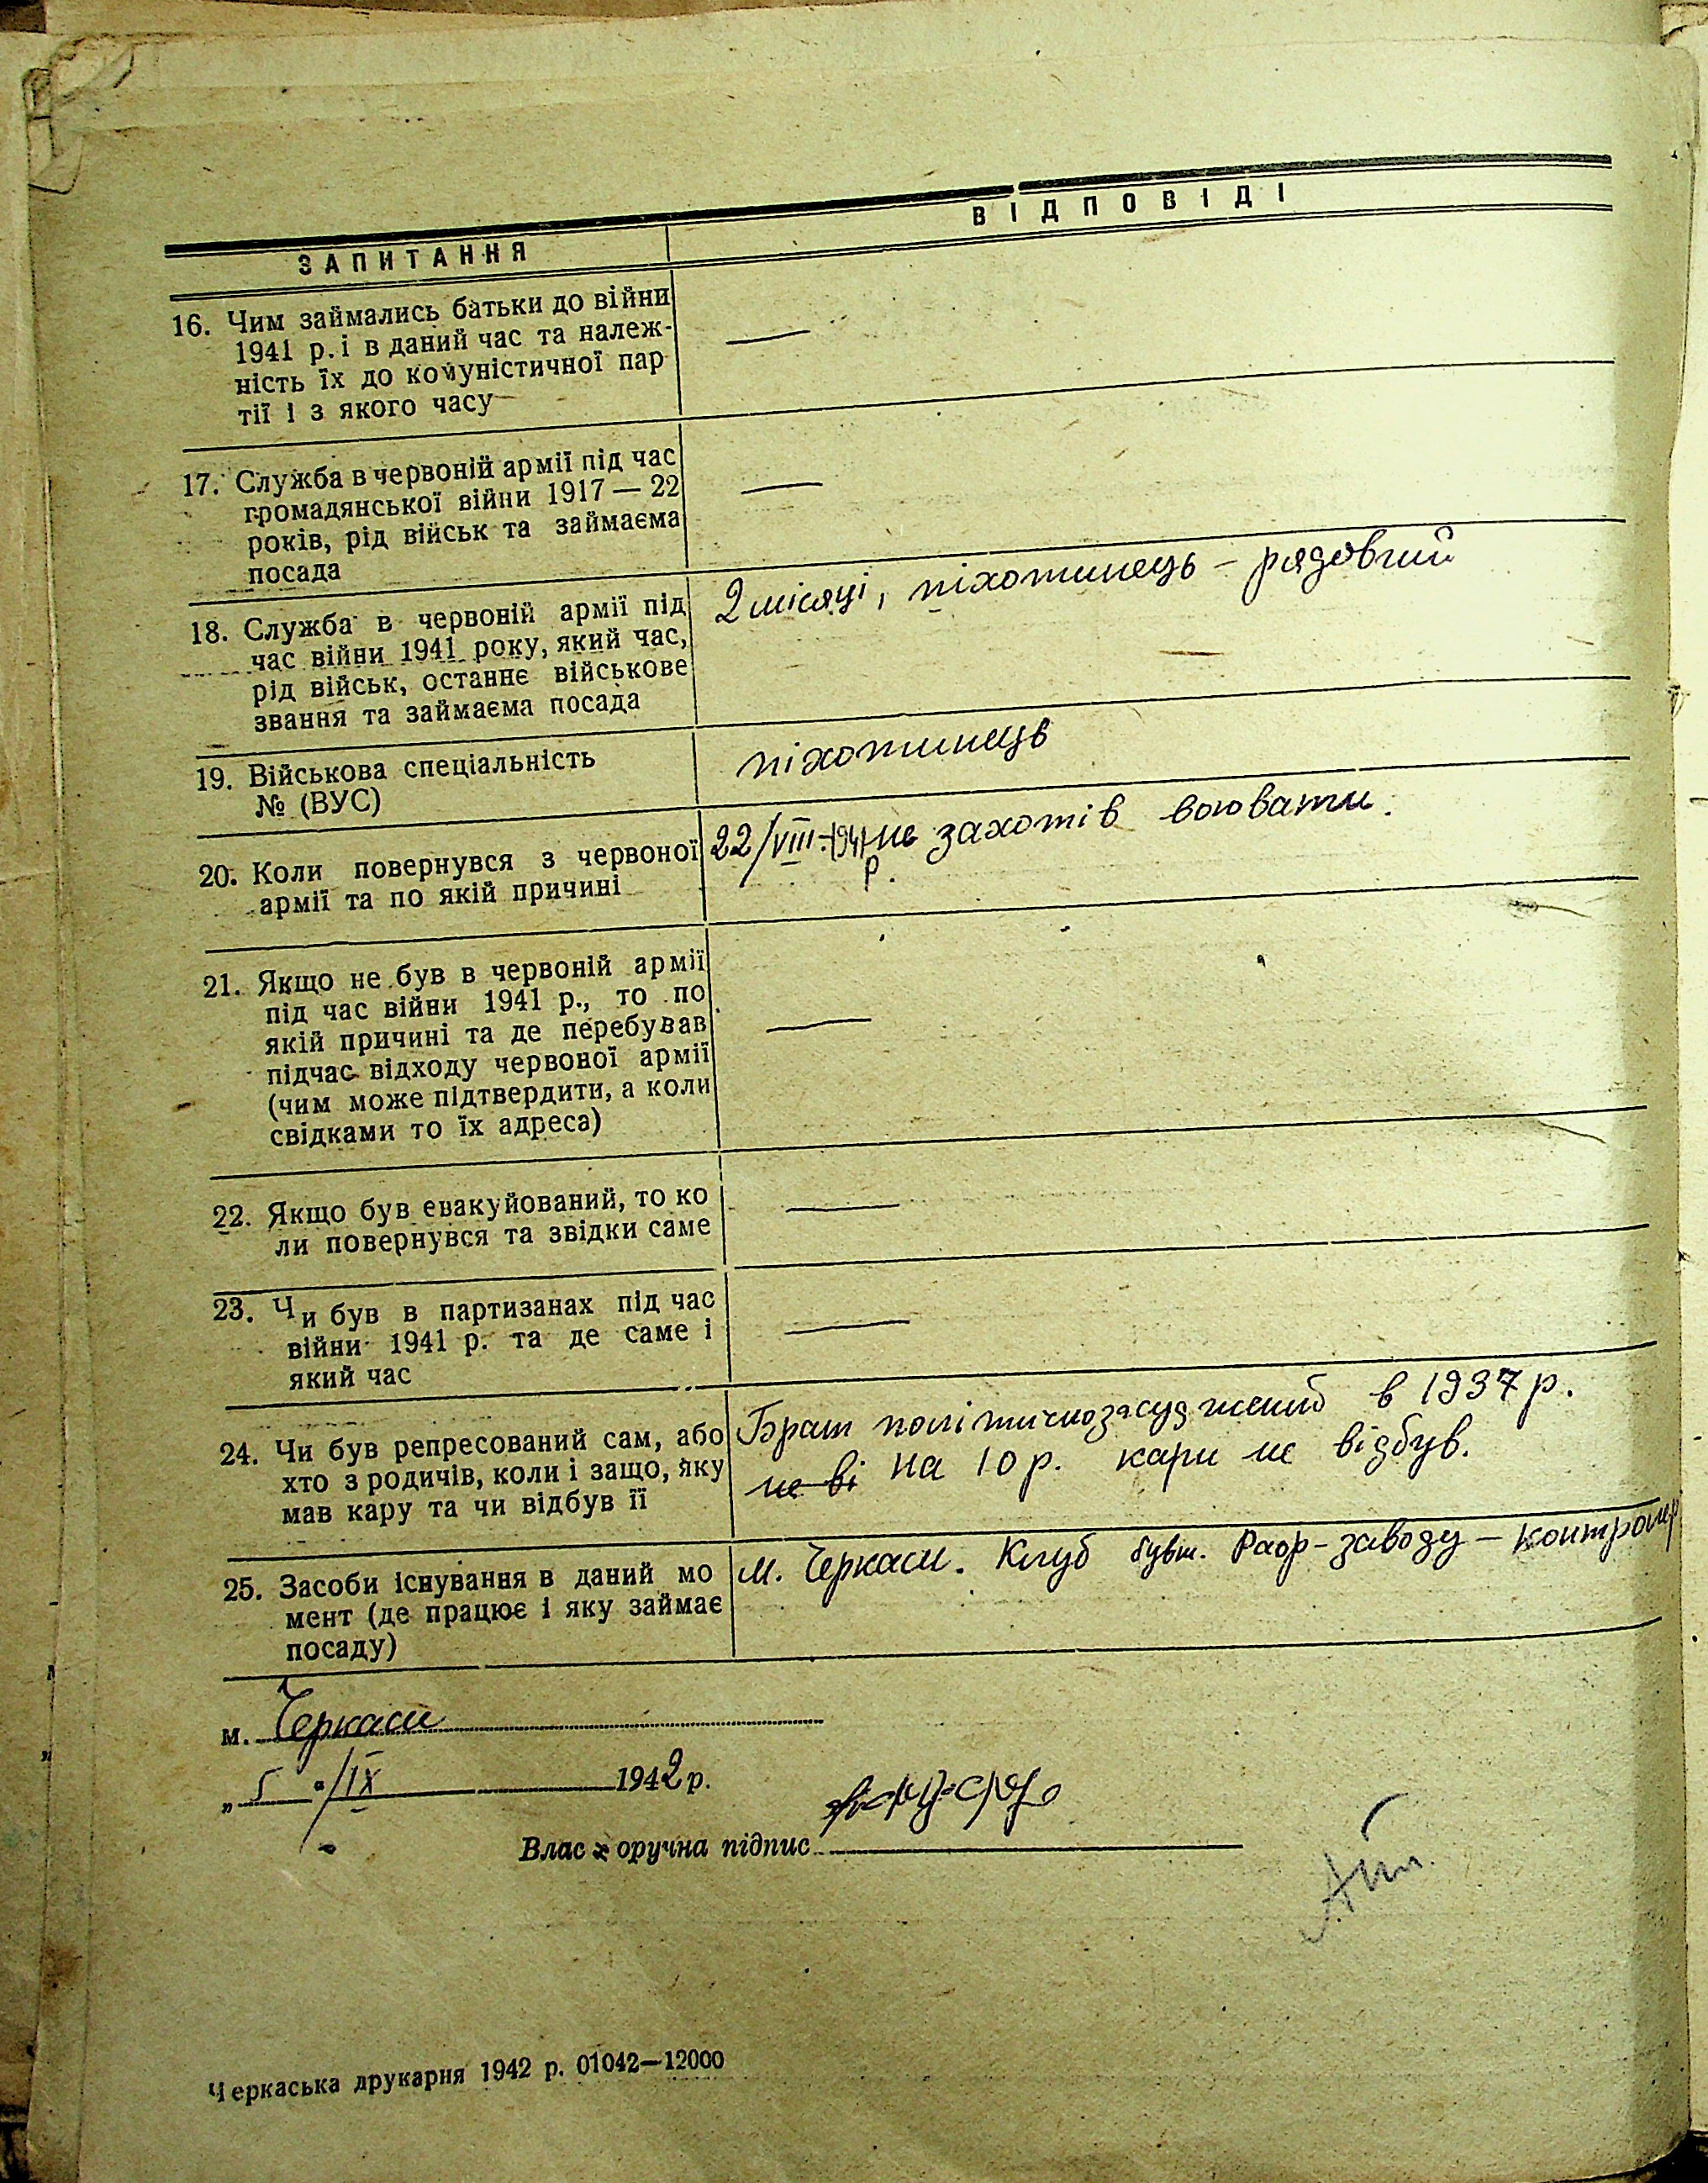 ЗАПИТАННЯ
ВІДПОВІДІ
16. Чим займались батьки до війни
1941 р. і в даний час та належ-
ність їх до комуністичної пар
тії і з якого часу
—
17. Служба в червоній армії під час
громадянської війни 1917 — 22
років, рід військ та займаєма
посада
—
18. Служба в червоній армії під
час війни 1941 року, який час,
рід військ, останнє військове
звання та займаєма посада
2 місяці, піхотинець – рядовий
—
19. Військова спеціальність
№ (ВУС)
піхотинець
20. Коли повернувся з червоної
армії та по якій причині
22/VIII-1941 не захотів воювати.
р.
21. Якщо не був в червоній армії
під час війни 1941 р., то по
якій причині та де перебував
підчас відходу червоної армії
(чим може підтвердити, а коли
свідками то їх адреса)
—
22. Якщо був евакуйований, то ко
ли повернувся та звідки саме
—
23. Чи був в партизанах під час
війни 1941 р. та де саме і
який час
—
24. Чи був репресований сам, або
хто з родичів, коли і защо, яку
мав кару та чи відбув її
Брат політичнозасуджений в 1937 р.
не ві на 10 р. кари не відбув.
25. Засоби існування в даний мо
мент (де працює і яку займає
посаду)
м. Черкаси. Клуб бувш. Раф-заводу – контролер
м. Черкаси
„ 5 "/IX 1942 р.
Власноручна підпис
Черкаська друкарня 1942 р. 01042—12000